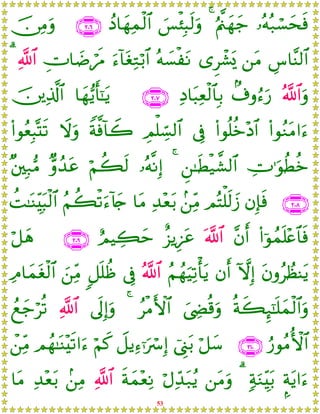 فَحَسْبُهُۥ جَهَنَّمُ ۚ وَلَبِئْسَ ٱلْمِهَادُ ٢٠٦ وَمِنَ
ٱلنَّاسِ مَن يَشْرِى نَفْسَهُ ٱبْتِغَآءَ مَرْضَاتِ ٱللَّهِ ۗ
وَٱللَّهُ رَءُوفٌۢ بِٱلْعِبَادِ ٢٠٧ يَـٰٓأَيُّهَا ٱلَّذِينَ
ءَامَنُوا۟ ٱدْخُلُوا۟ فِى ٱلسِّلْمِ كَآفَّةً وَلَا تَتَّبِعُوا۟
خُطُوَٰتِ ٱلشَّيْطَـٰنِ ۚ إِنَّهُۥ لَكُمْ عَدُوٌّ مُّبِينٌ
٢٠٨ فَإِن زَلَلْتُم مِّنۢ بَعْدِ مَا جَآءَتْكُمُ ٱلْبَيِّنَـٰتُ
فَٱعْلَمُوٓا۟ أَنَّ ٱللَّهَ عَزِيزٌ حَكِيمٌ ٢٠٩ هَلْ
يَنظُرُونَ إِلَّآ أَن يَأْتِيَهُمُ ٱللَّهُ فِى ظُلَلٍ مِّنَ ٱلْغَمَامِ
وَٱلْمَلَـٰٓئِكَةُ وَقُضِىَ ٱلْأَمْرُ ۚ وَإِلَى ٱللَّهِ تُرْجَعُ
ٱلْأُمُورُ ٢١٠ سَلْ بَنِىٓ إِسْرَٰٓءِيلَ كَمْ ءَاتَيْنَـٰهُم مِّنْ
ءَايَةٍۭ بَيِّنَةٍ ۗ وَمَن يُبَدِّلْ نِعْمَةَ ٱللَّهِ مِنۢ بَعْدِ مَا
53